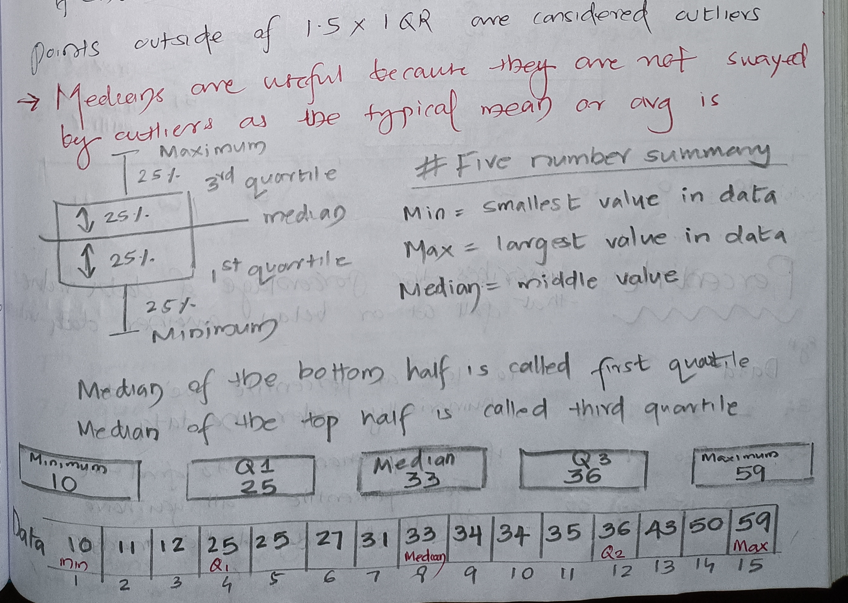 points outside of 1.5 X IQR are considered outliers
→ Medians are useful because they are not swayed
by outliers as the typical mean or avg is
Maximum
25%
3rd quartile
25%.
median
25%.
1st quartile
25%
Minimum
# Five number summary
Min = smallest value in data
Max = largest value in data
Median = middle value
Median of the bottom half is called first quartile
Median of the top half is called third quartile
Minimum
10
Q1
25
Median
33
Q3
36
Maximum
59
Data 10 11 12 25 25 27 31 33 34 34 35 36 43 50 59
min Q1 Median Q2 Max
1 2 3 4 5 6 7 8 9 10 11 12 13 14 15